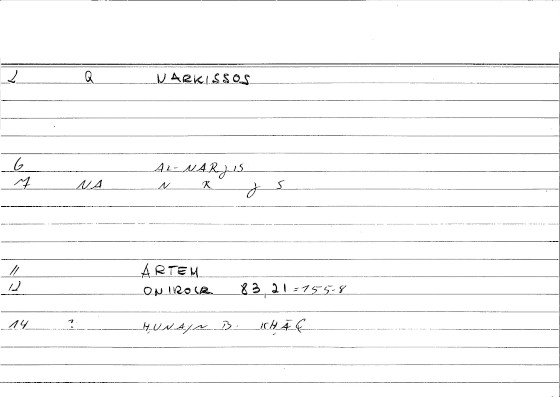 2 Q NARKISSOS
6 AL-NARJIS
7 NA N R J S
11 ARTEM
12 ONIROCR 83,21=155.8
14 ? ḤUNAJN B. ISḤĀQ